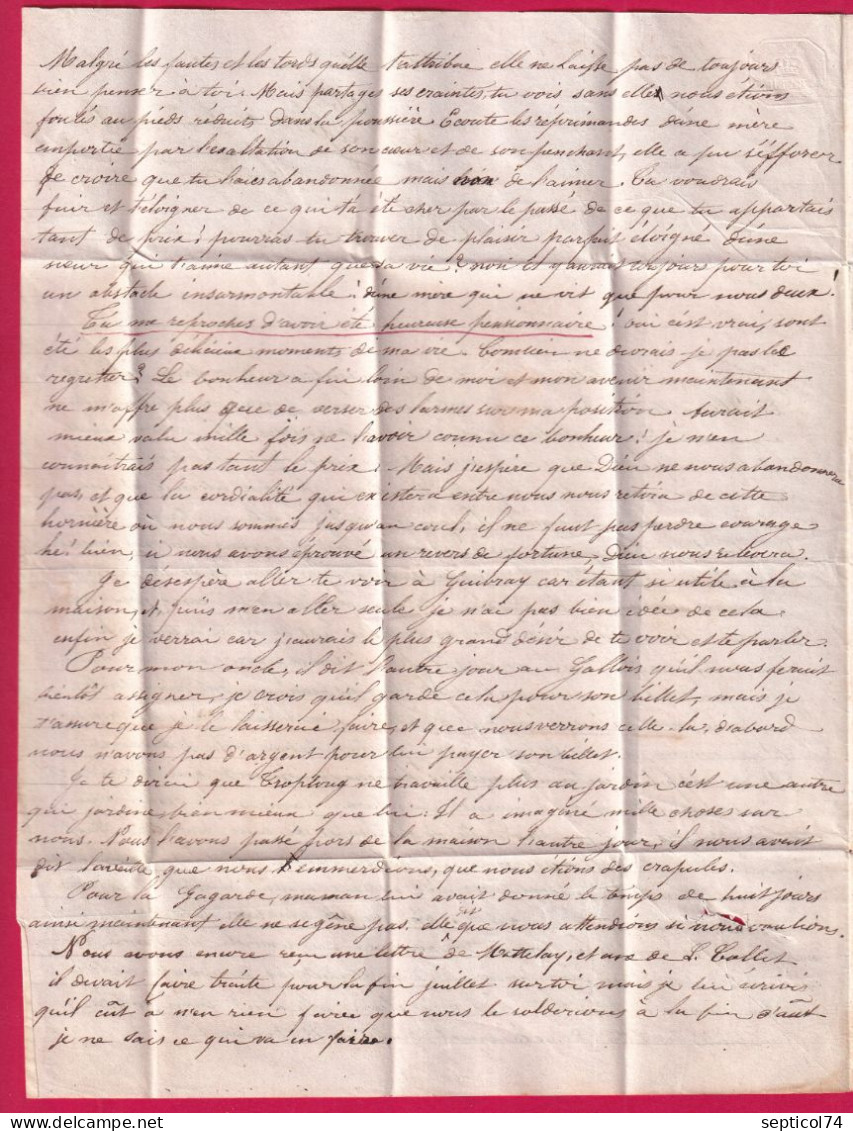 Malgré les fautes et les tords qu'elle t'attribue elle ne laisse pas de toujours
bien penser à toi. Mais partages ses craintes, tu vois sans elle nous étions
foulés au pieds réduits dans la poussière Ecoute les réprimandes d'une mère
emportée par l'exaltation de son cœur et de son penchant, elle a pu s'efforcer
de croire que tu l'aies abandonnée mais non de l'aimer. Tu voudrais
fuir et t'éloigner de ce qui t'a été cher par le passé de ce que tu appartais
tant de prix! pourras tu trouver de plaisir parfait éloigné d'une
sœur qui t'aime autant que sa vie? non il y aurait toujours pour toi
un obstacle insurmontable! d'une mère qui ne vit que pour nous deux!
Tu me reproches d'avoir été heureuse pensionnaire! oui c'est vrai, sont
été les plus délicieux moments de ma vie. Combien ne devrais-je pas les
regretter? Le bonheur a fui loin de moi et mon avenir maintenant
ne m'offre plus que de verser des larmes sur ma position Aurait
mieux valu mille fois ne l'avoir connu ce bonheur! je n'en
connaîtrais pas tant le prix. Mais j'espère que Dieu ne nous abandonnera
pas, et que la cordialité qui existera entre nous nous retira de cette
hornière où nous sommes jusqu'au coul, il ne faut pas perdre courage
hé! bien, si nous avons éprouvé un revers de fortune, Dieu nous relèvera.
Je désespère aller te voir à Guibray car étant si utile à la
maison, et puis m'en aller seule je n'ai pas bien idée de cela
enfin je verrai car j'aurais le plus grand désir de te voir et te parler.
Pour mon oncle, il dit l'autre jour au Gallois qu'il nous ferait
bientôt assigner, je crois qu'il garde cela pour son billet, mais je
t'assure que je le laisserai faire, et que nous verrons celle-la, d'abord
nous n'avons pas d'argent pour lui payer son billet.
Je te dirai que Troplong ne travaille plus au jardin c'est une autre
qui jardine bien mieux que lui. Il a imaginé mille choses sur
nous. Nous l'avons passé hors de la maison l'autre jour, il nous avait
dit la veille, que nous l'emmerdions, que nous étions des crapules.
Pour la Gagarde, maman lui avait donné le temps de huit jours
ainsi maintenant elle ne se gêne pas. elle dit que nous attendions si nous voulions.
Nous avons encore reçu une lettre de Mattelay, et avs de L. Collet
il devait faire traite pour la fin juillet sur toi mais je lui écrivis
qu'il eût à n'en rien faire que nous le solderions à la fin d'août
je ne sais ce qui va en faire.
septicol74